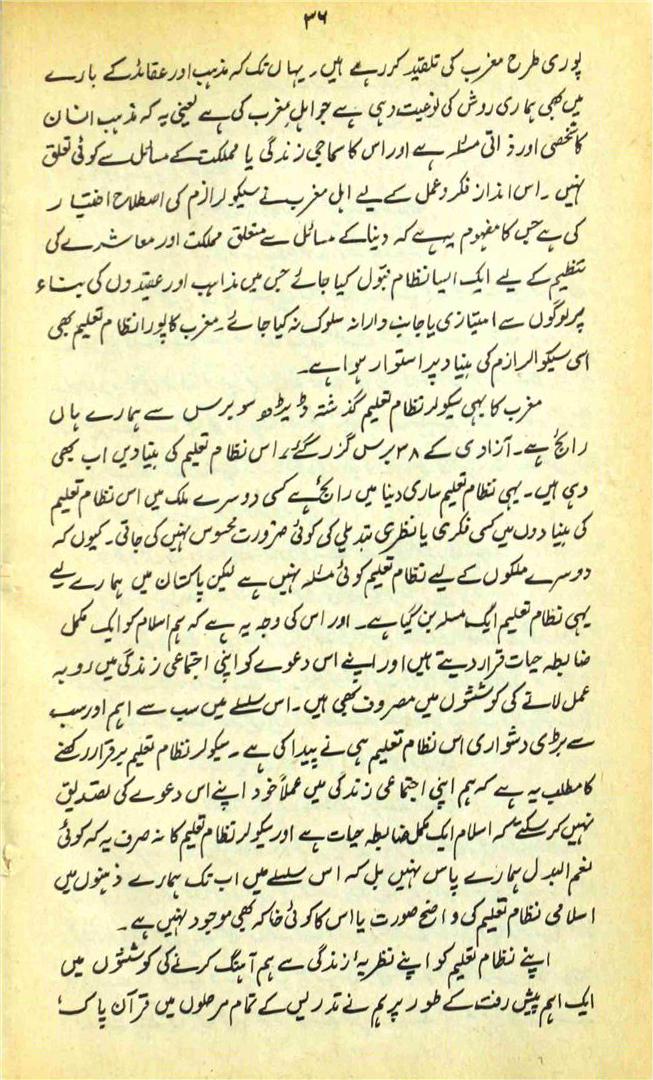 ۳۶
پوری طرح مغرب کی تلقید کررہے ہیں۔ یہاں تک کہ مذہب اور عقائد کے بارے
میں بھی ہماری روش کی نوعیت وہی ہے جو اہلِ مغرب کی ہے یعنی یہ کہ مذہب انسان
کا شخصی اور ذاتی مسئلہ ہے اور اس کا سماجی زندگی یا مملکت کے مسائل سے کوئی تعلق
نہیں۔ اس انداز فکر و عمل کے لیے اہل مغرب نے سیکولرازم کی اصطلاح اختیار
کی ہے جس کا مفہوم یہ ہے کہ دنیا کے مسائل سے متعلق مملکت اور معاشرے کی
تنظیم کے لیے ایک ایسا نظام قبول کیا جائے جس میں مذاہب اور عقیدوں کی بناء
پر لوگوں سے امتیازی یا جانب دارانہ سلوک نہ کیا جائے۔ مغرب کا پورا نظام تعلیم بھی
اسی سیکوالرازم کی بنیاد پر استوار ہوا ہے۔
مغرب کا یہی سیکولر نظام تعلیم گذشتہ ڈیڑھ سو برس سے ہمارے ہاں
رائج ہے۔ آزادی کے ۳۸ برس گزر گئے، اس نظام تعلیم کی بنیادیں اب بھی
وہی ہیں۔ یہی نظام تعلیم ساری دنیا میں رائج ہے کسی دوسرے ملک میں اس نظام تعلیم
کی بنیادوں میں کسی فکری یا نظری تبدیلی کی کوئی ضرورت محسوس نہیں کی جاتی۔ کیوں کہ
دوسرے ملکوں کے لیے نظام تعلیم کوئی مسئلہ نہیں ہے لیکن پاکستان میں ہمارے لیے
یہی نظام تعلیم ایک مسلہ بن گیا ہے۔ اور اس کی وجہ یہ ہے کہ ہم اسلام کو ایک مکمل
ضابطہ حیات قرار دیتے ہیں اور اپنے اس دعوے کو اپنی اجتماعی زندگی میں روبہ
عمل لانے کی کوششوں میں مصروف بھی ہیں۔ اس سلسلے میں سب سے اہم اور سب
سے بڑی دشواری اس نظام تعلیم ہی نے پیدا کی ہے۔ سیکولر نظام تعلیم برقرار رکھنے
کا مطلب یہ ہے کہ ہم اپنی اجتماعی زندگی میں عملاً خود اپنے اس دعوے کی تصدیق
نہیں کر سکتے کہ اسلام ایک مکمل ضابطہ حیات ہے اور سیکولر نظام تعلیم کا نہ صرف یہ کہ کوئی
نعم البدل ہمارے پاس نہیں بل کہ اس سلسلے میں اب تک ہمارے ذہنوں میں
اسلامی نظام تعلیم کی واضح صورت یا اس کا کوئی خاکہ بھی موجود نہیں ہے۔
اپنے نظام تعلیم کو اپنے نظریۂ زندگی سے ہم آہنگ کرنے کی کوششوں میں
ایک اہم پیش رفت کے طور پر ہم نے تدریس کے تمام مرحلوں میں قرآن پاک،